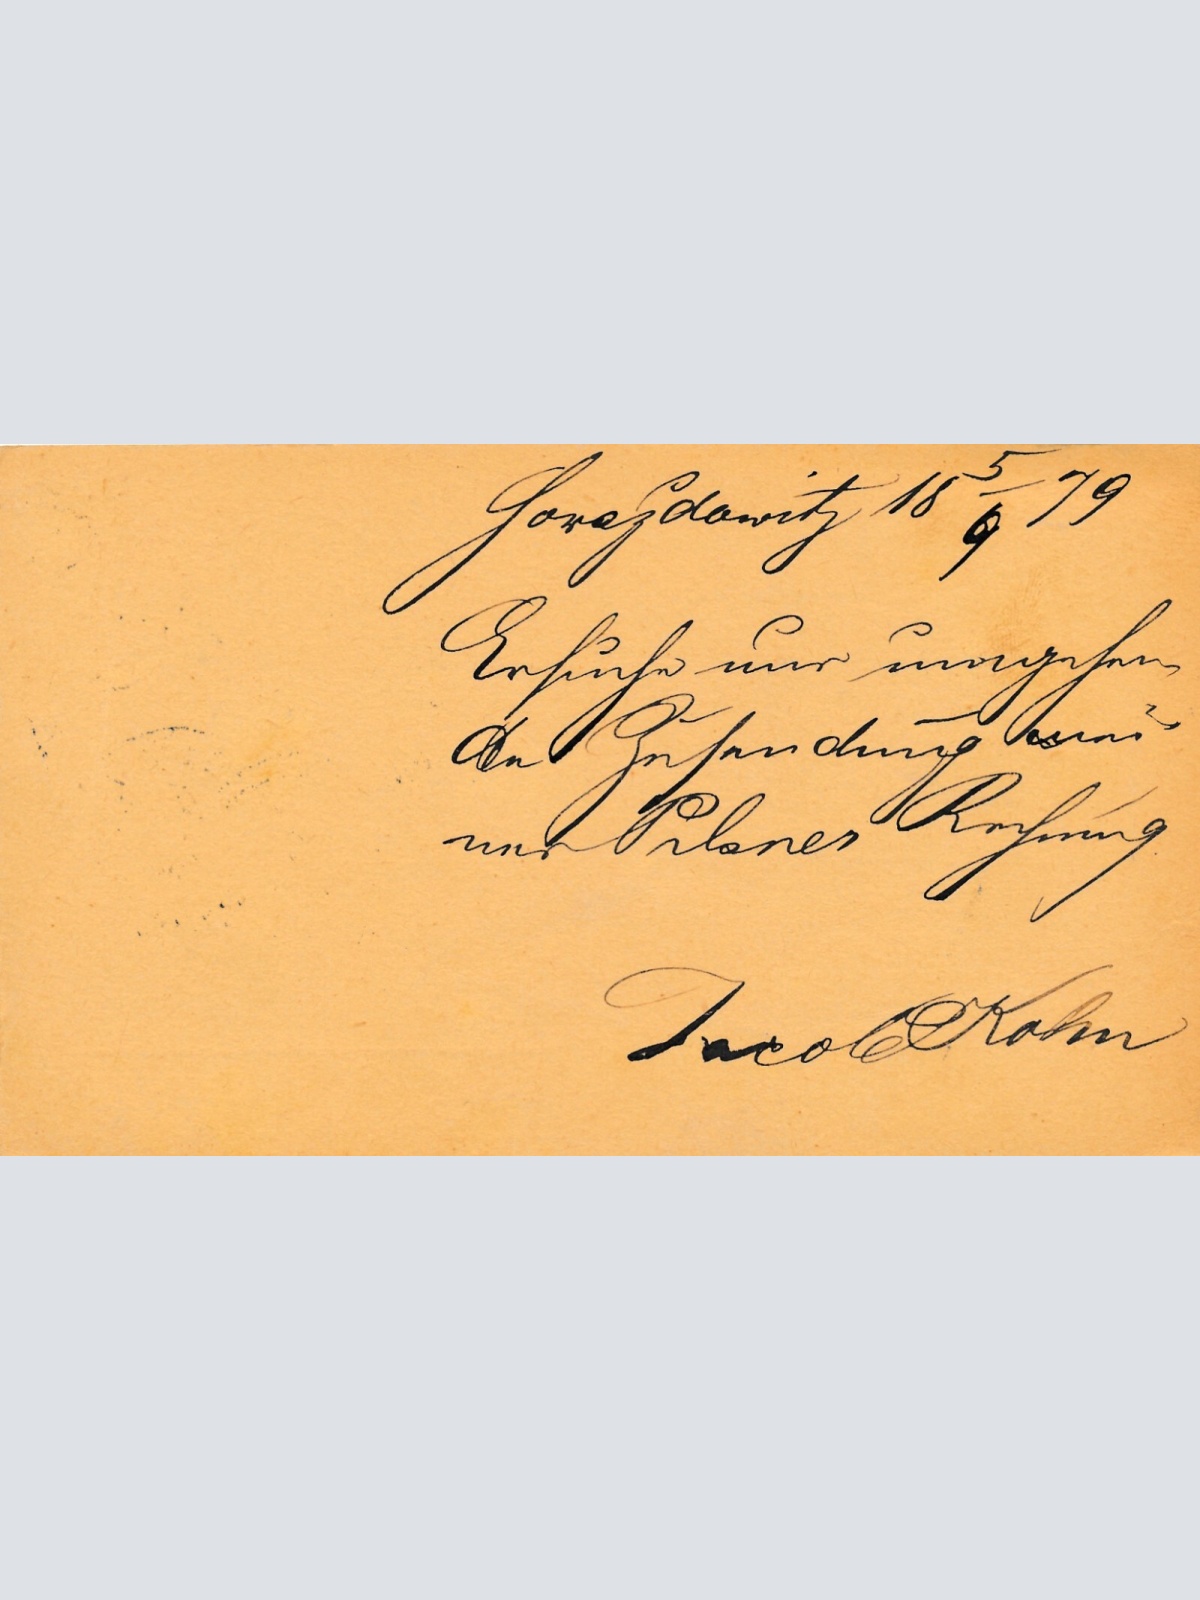 Horazdowitz 18 5/9 79
Ersuche um umgehen
de Zusendung mei
ner Pilsner Rechnung
Jacob Kohn